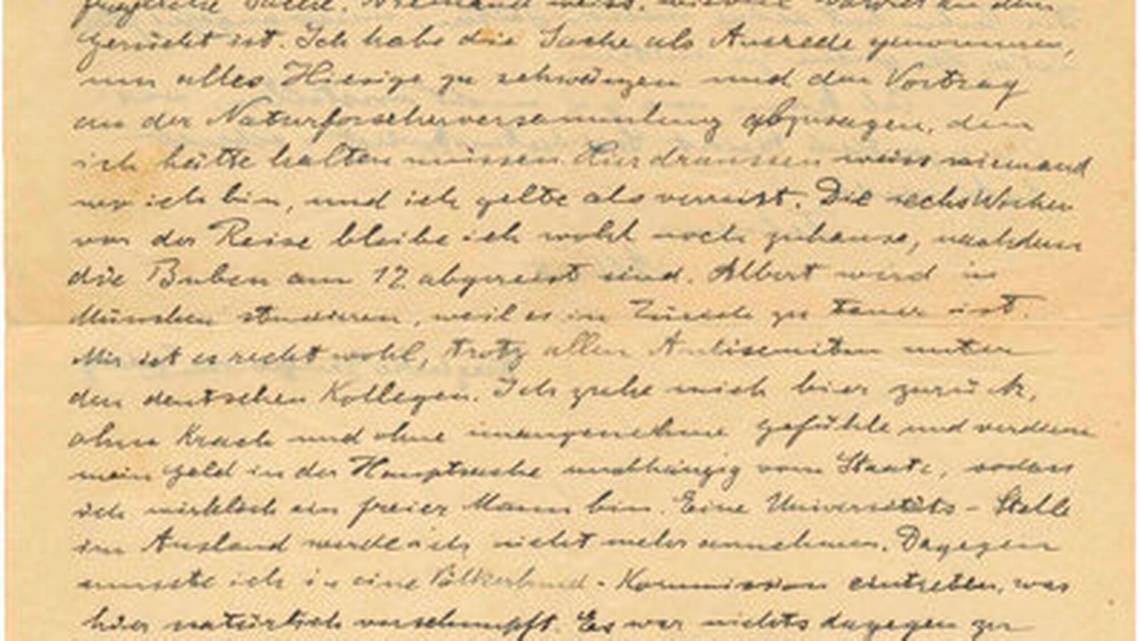 Sache. Niemand weiss, wieviel Wahres an dem
Gerücht ist. Ich habe die Sache als Ausrede genommen,
um alles Hiesige zu schwänzen und den Vortrag
an der Naturforscherversammlung abzusagen, den
ich hätte halten müssen. Hier draussen weiss niemand
wo ich bin, und ich gelte als verreist. Die sechs Wochen
vor der Reise bleibe ich wohl noch zuhause, nachdem
die Buben am 17 abgereist sind. Albert wird in
München studieren, weil es in Zürich zu teuer ist.
Mir ist es recht wohl, trotz allen Antisemiten unter
den deutschen Kollegen. Ich ziehe mich hier zurück,
ohne Krach und ohne unangenehme Gefühle und verdiene
mein Geld in der Hauptsache unabhängig vom Staate, sodass
ich wirklich ein freier Mann bin. Eine Universitäts-Stelle
im Ausland werde ich nicht mehr annehmen. Dagegen
musste ich in eine Völkerbund-Kommission eintreten, was
hier natürlich verschnupft. Es war nichts dagegen zu